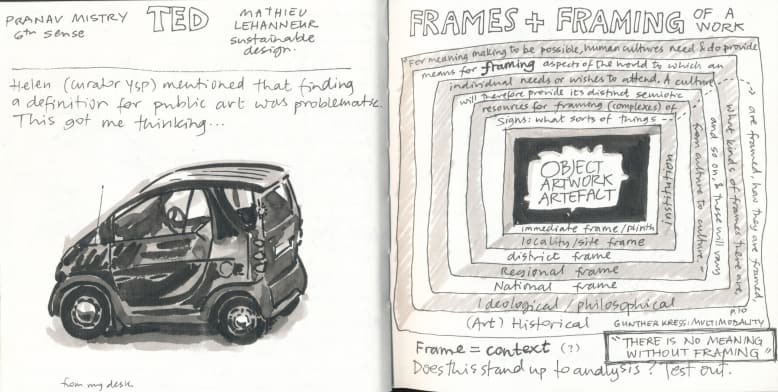 PRANAV MISTRY
6th sense
TED
MATHIEU
LEHANNEUR
sustainable
design.
Helen (curator YSP) mentioned that finding
a definition for public art was problematic.
This got me thinking...
from my desk
FRAMES + FRAMING OF A
WORK
"For meaning making to be possible, human cultures need & do provide
means for framing aspects of the world to which an
individual needs or wishes to attend. A culture
will therefore provide its distinct semiotic
resources for framing (complexes) of
signs: what sorts of things
are framed, how they are framed,
what kinds of frames there are,
and so on, & these will vary
from culture to culture"
OBJECT
ARTWORK
ARTEFACT
institution
immediate frame/plinth
locality/site frame
district frame
Regional frame
National frame
Ideological/philosophical
(Art) Historical
P.10
GUNTHER KRESS: MULTIMODALITY
Frame = context (?)
"THERE IS NO MEANING
WITHOUT FRAMING"
Does this stand up to analysis? Test out.